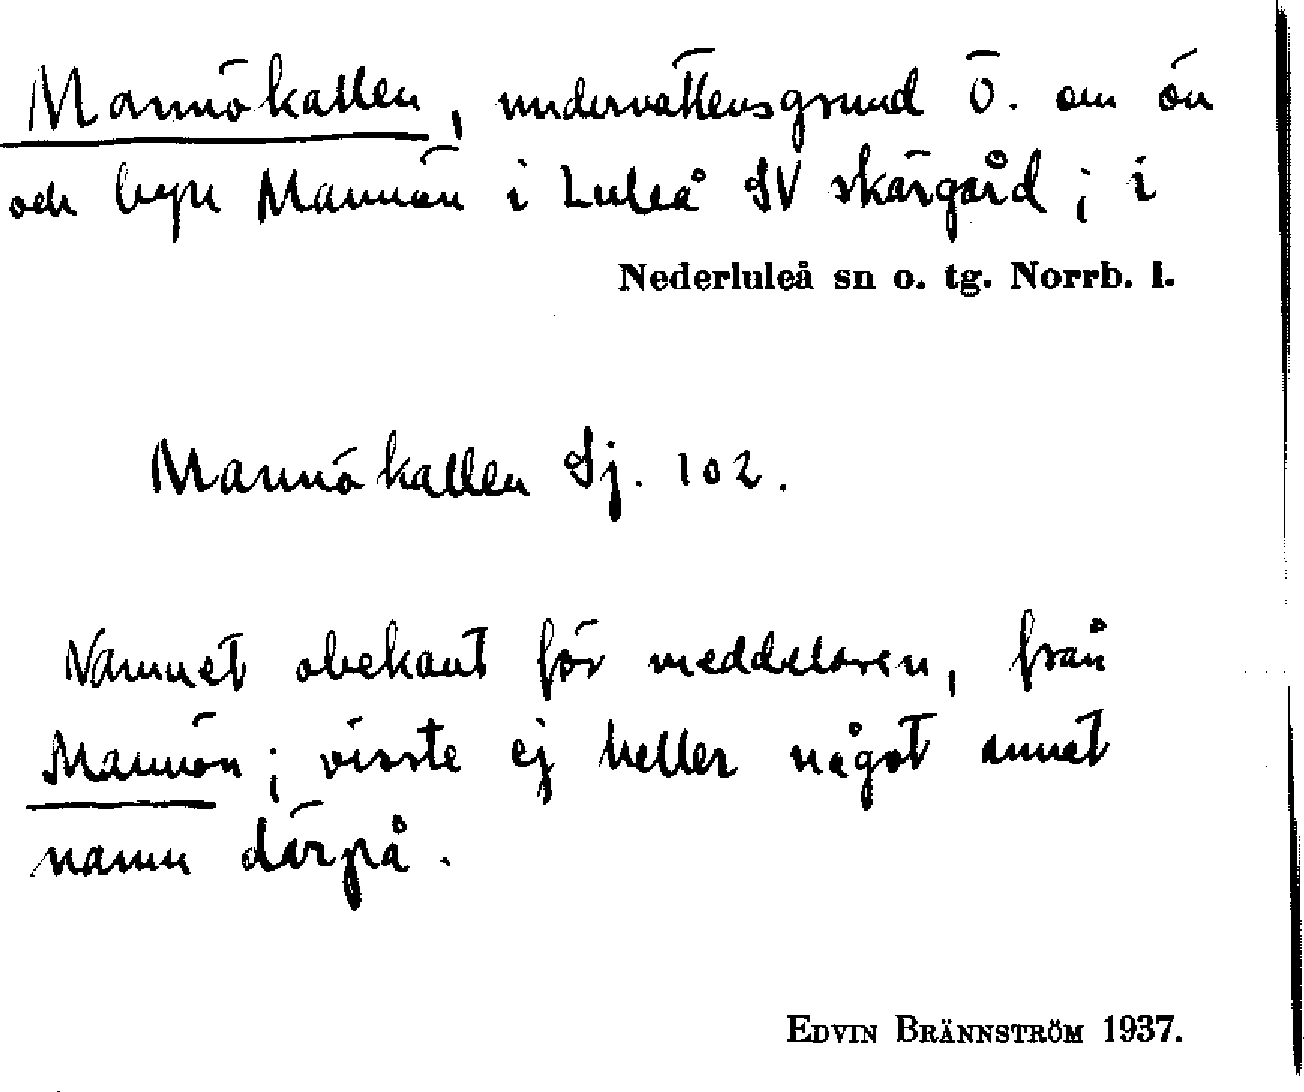 Mannökallen, undervattensgrund Ö. om ön
och byn Mannön i Luleå SV skärgård; i
Nederluleå sn o. tg. Norrb. l.
Mannökallen Sj. 102.
Namnet obekant för meddelaren, från
Mannön; visste ej heller något annat
namn därpå.
EDVIN BRÄNNSTRÖM 1937.